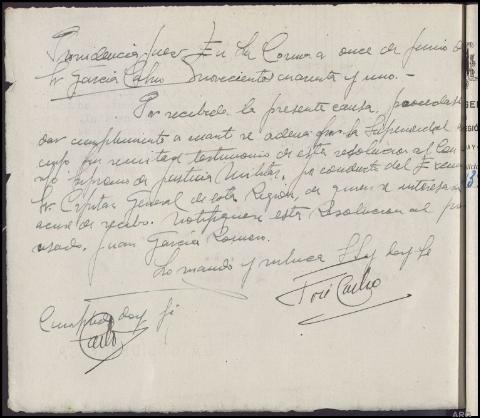 Providencia Juez En la Coruña a once de Junio de
Sr García Calvo novecientos cuarenta y uno.-
Por recibida la presente causa, procedase
dar cumplimiento a cuanto se ordena por la Superioridad
remitase testimonio de esta resolucion al Con
sejo Supremo de Justicia Militar, por conducto del Excmo
Sr. Capitan General de esta Region, de quien se interesara
acuse de recibo. Notifiquese esta Resolucion al pro
cesado, Juan García Romero.
Lo mando y rubrica S Sª doy fe
José Calvo
Cumplido doy fe